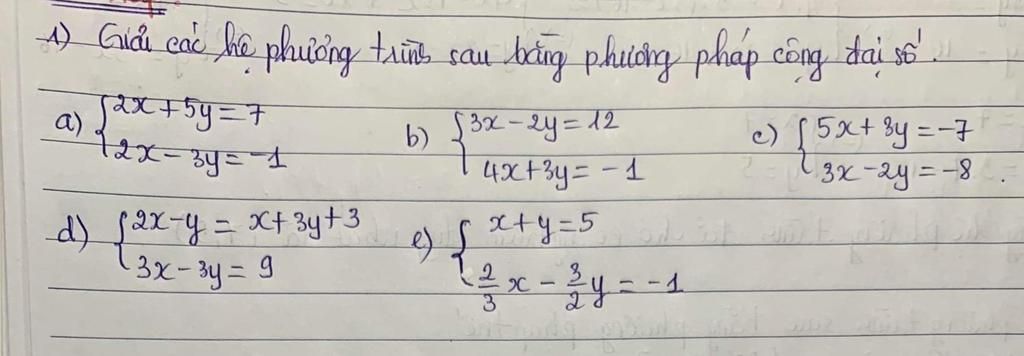 1) Giải các hệ phương trình sau bằng phương pháp cộng đại số.
a) {2x + 5y = 7 b) {3x - 2y = 12 c) {5x + 3y = -7
2x - 3y = -1 4x + 3y = -1 3x - 2y = -8.
d) {2x - y = x + 3y + 3 e) { x + y = 5
3x - 3y = 9 2/3 x - 3/2 y = -1